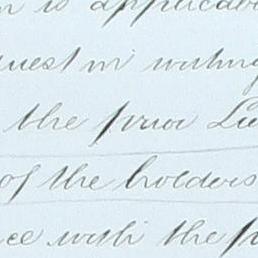 n is applicab
quest in writing
the prior Li
of the holders
ce with the p